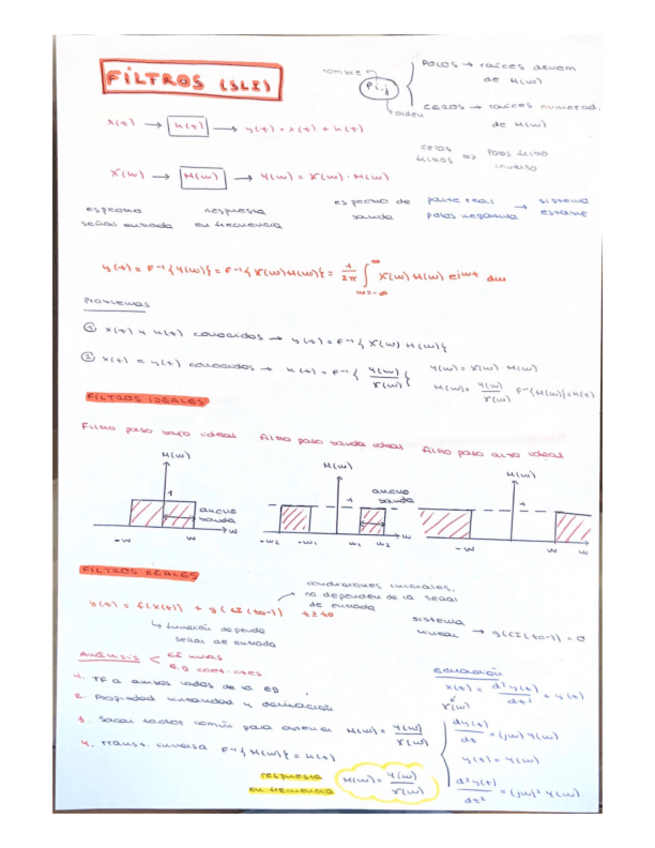 FILTROS (SLI)
nombre
Pi,j
orden
POLOS → raíces denom
de H(w)
CEROS → raíces numerad.
de H(w)
x(t) → h(t) → y(t) = x(t) * h(t)
X(w) → H(w) → Y(w) = X(w) · H(w)
espectro
señal entrada
respuesta
en frecuencia
espectro de
salida
parte real
polos negativa
→ sistema
estable
y(t) = F⁻¹{Y(w)} = F⁻¹{X(w)H(w)} = 1/2π ∫ X(w) H(w) ejwt dw
w=-∞
∞
Problemas
① x(t) y h(t) conocidos → y(t) = F⁻¹{X(w) H(w)}
② x(t) e y(t) conocidos → h(t) = F⁻¹{Y(w)/X(w)}
Y(w) = X(w) · H(w)
H(w) = Y(w)/X(w) F⁻¹{H(w)} = h(t)
FILTROS IDEALES
Filtro paso bajo ideal
Filtro paso banda ideal
Filtro paso alto ideal
H(w)
1
ancho
banda
-w
w
w
H(w)
1
ancho
banda
-w2
-w1
w1
w2
w
H(w)
1
-w
w
w
FILTROS REALES
condiciones iniciales,
no dependen de la señal
de entrada
y(t) = f(x(t)) + g(CI(t0-1)) t≥t0
↳ función depende
señal de entrada
sistema
lineal → g(CI(t0-1)) = 0
Análisis
CI nulas
E.D coef. ctes.
1. TF a ambos lados de la ED
2. Propiedad linealidad y derivación
3. Sacar factor común para obtener H(w) = Y(w)/X(w)
4. Transf. inversa F⁻¹{H(w)} = h(t)
respuesta
en frecuencia
H(w) = Y(w)/X(w)
ecuación
x(t) = d²y(t)/dt² + y(t)
X(w)
dy(t)/dt = (jw) Y(w)
y(t) = Y(w)
d²y(t)/dt² = (jw)² Y(w)